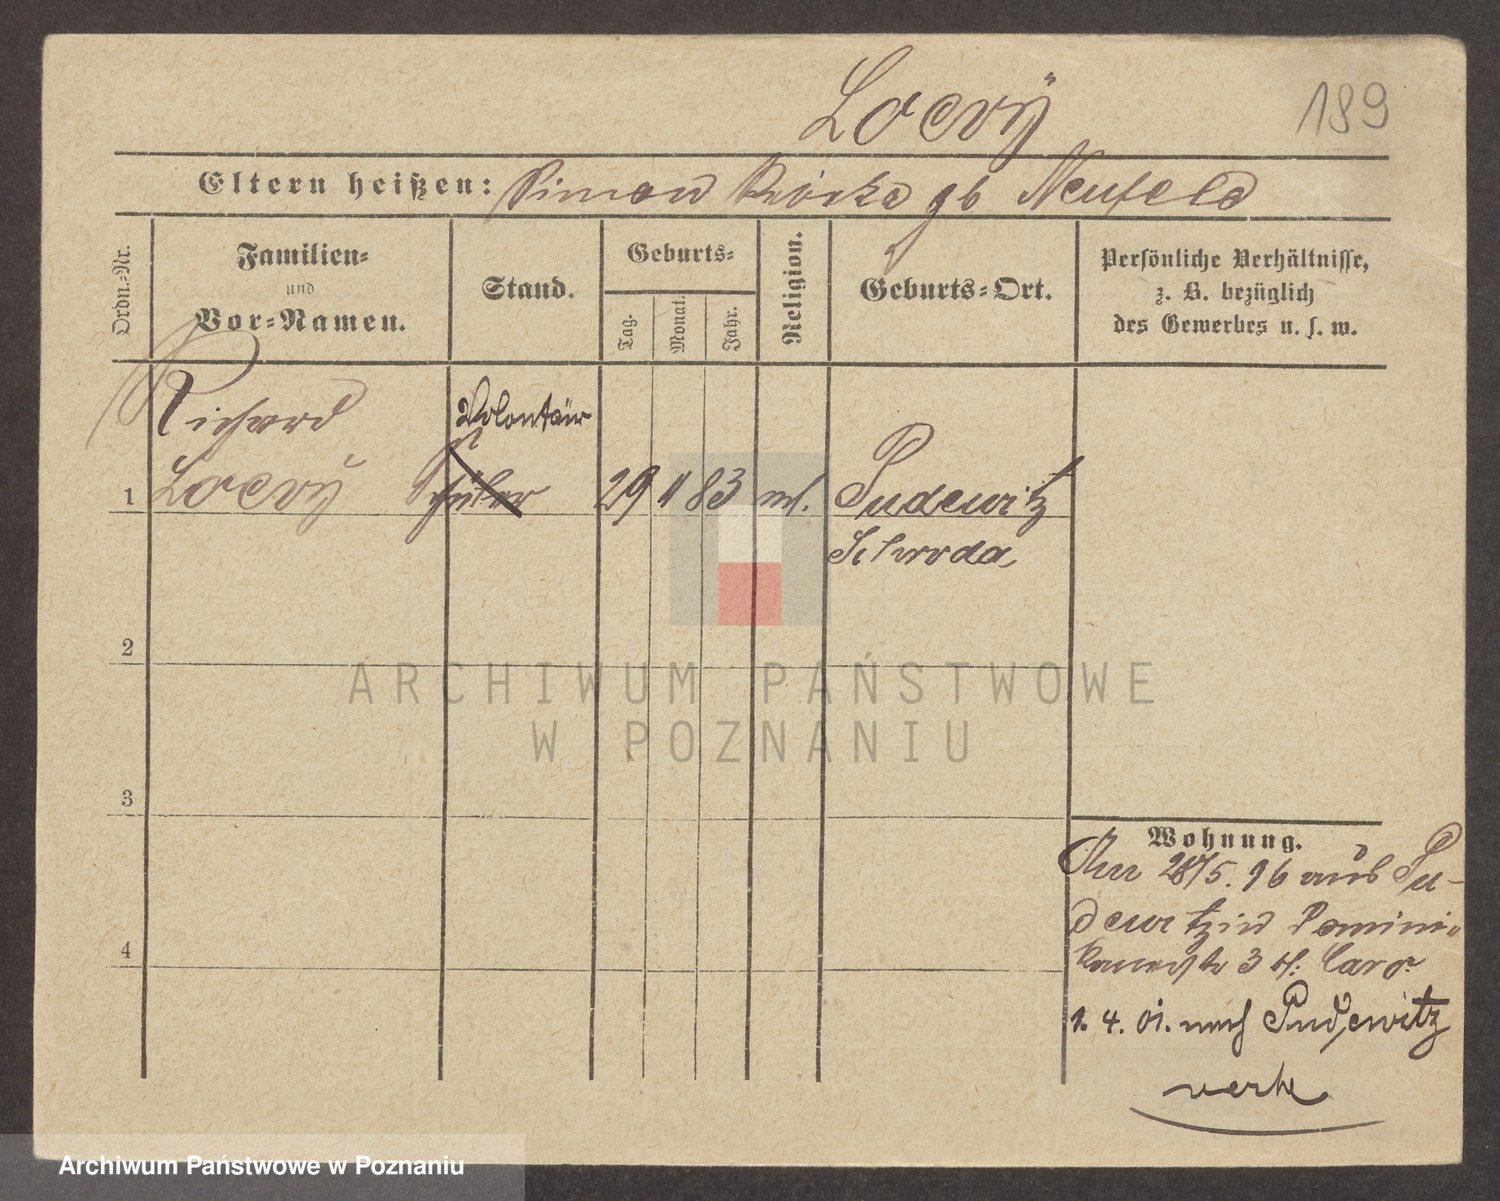 Loevÿ
189
Eltern heißen: Simon Rösche gb Neufeld
Ordn.-Nr.
Familien-
und
Vor-Namen.
Stand.
Geburts-
Tag.
Monat.
Jahr.
Religion.
Geburts-Ort.
Persönliche Verhältnisse,
z. B. bezüglich
des Gewerbes u. s. w.
Richard
Volontair
1 Loevÿ Schüler 29 11 83 ml. Pudewitz
Schroda
2
3
4
Wohnung.
28/5. 96 aus Pu-
dewitz in Domini-
kanerstr 3 b. Caro
1. 4. 01. nach Pudewitz
verh
ARCHIWUM PAŃSTWOWE
W POZNANIU
Archiwum Państwowe w Poznaniu